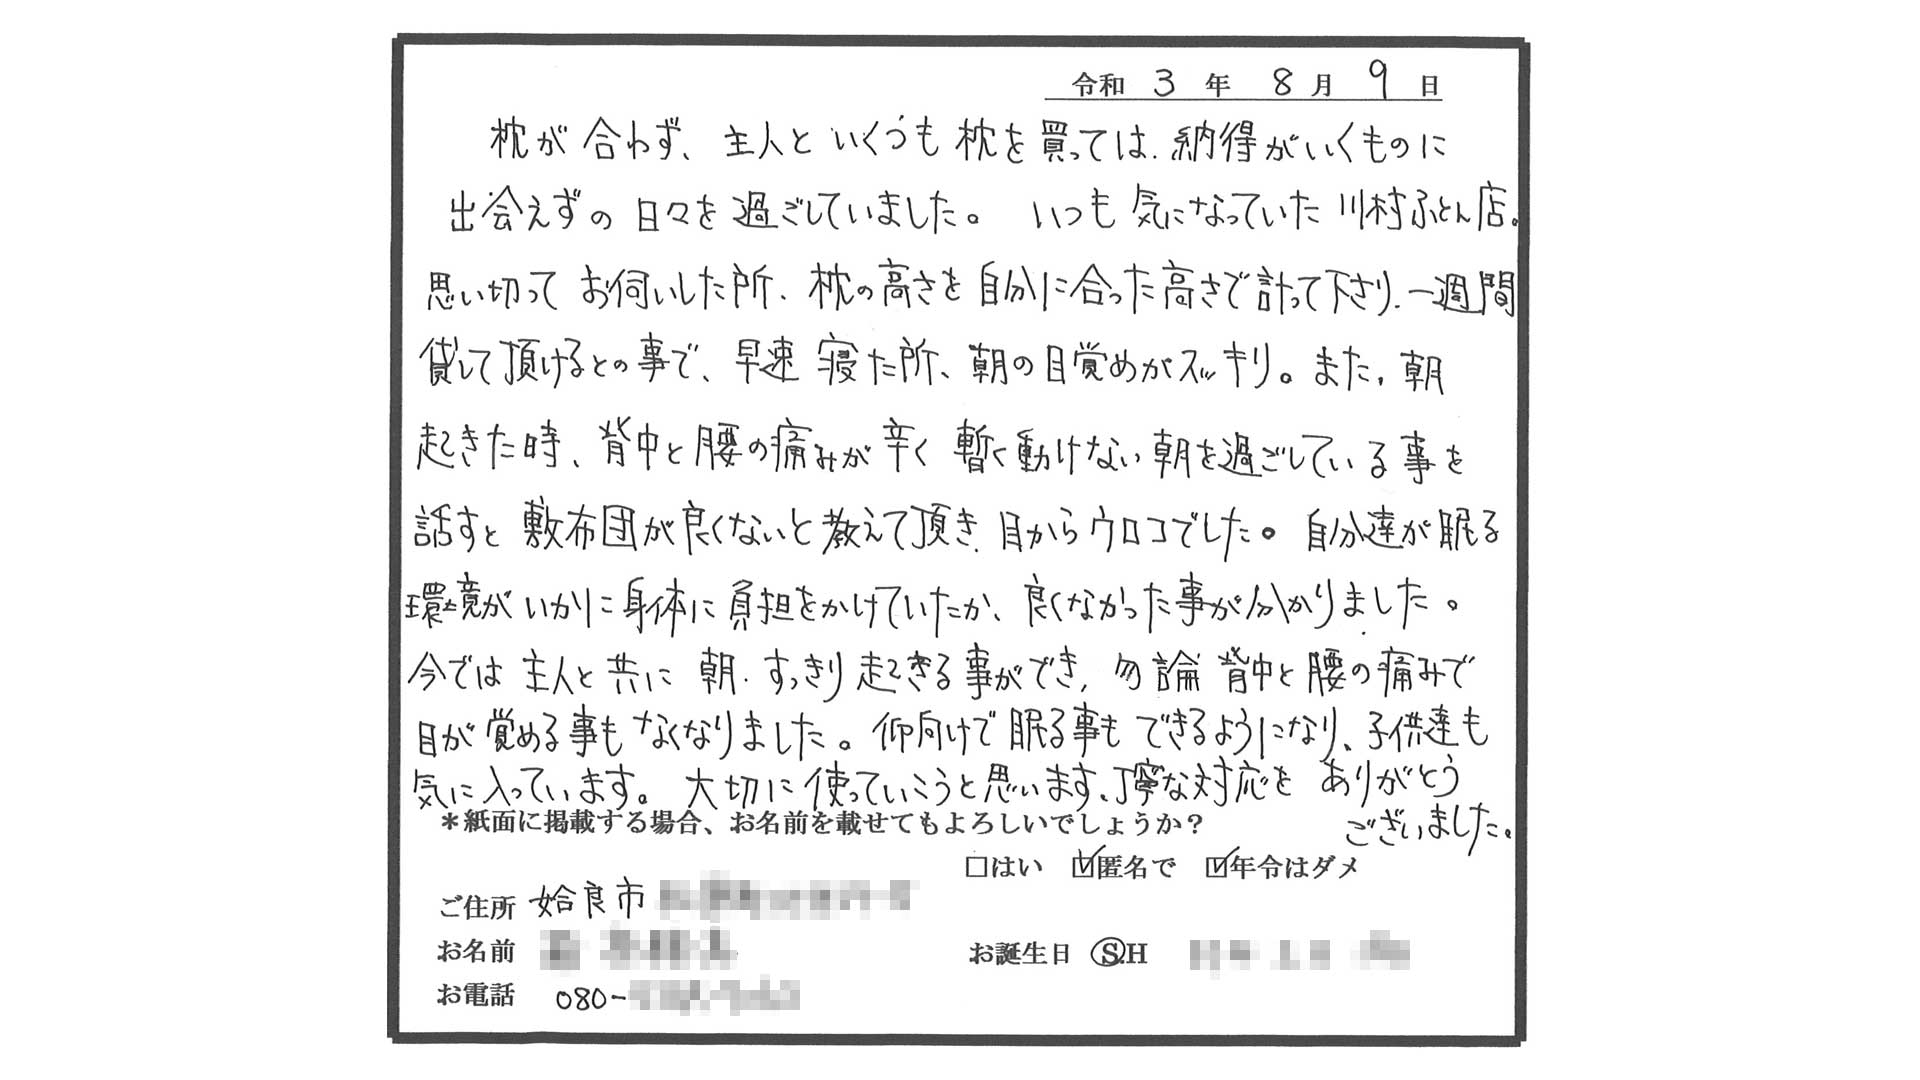 令和 3 年 8 月 9 日
枕が合わず、主人といくつも枕を買っては、納得がいくものに
出会えずの日々を過ごしていました。いつも気になっていた川村ふとん店。
思い切ってお伺いした所、枕の高さを自分に合った高さで計って下さり、一週間
貸して頂けるとの事で、早速寝た所、朝の目覚めがスッキリ。また、朝
起きた時、背中と腰の痛みが辛く暫く動けない朝を過ごしている事を
話すと敷布団が良くないと教えて頂き、目からウロコでした。自分達が眠る
環境がいかに身体に負担をかけていたか、良くなかった事が分かりました。
今では主人と共に朝、すっきり起きる事ができ、勿論背中と腰の痛みで
目が覚める事もなくなりました。仰向けで眠る事もできるようになり、子供達も
気に入っています。大切に使っていこうと思います、丁寧な対応をありがとう
ございました。
＊紙面に掲載する場合、お名前を載せてもよろしいでしょうか？
□はい ☑匿名で ☑年令はダメ
ご住所 姶良市
お名前
お誕生日 S.H
お電話 080-